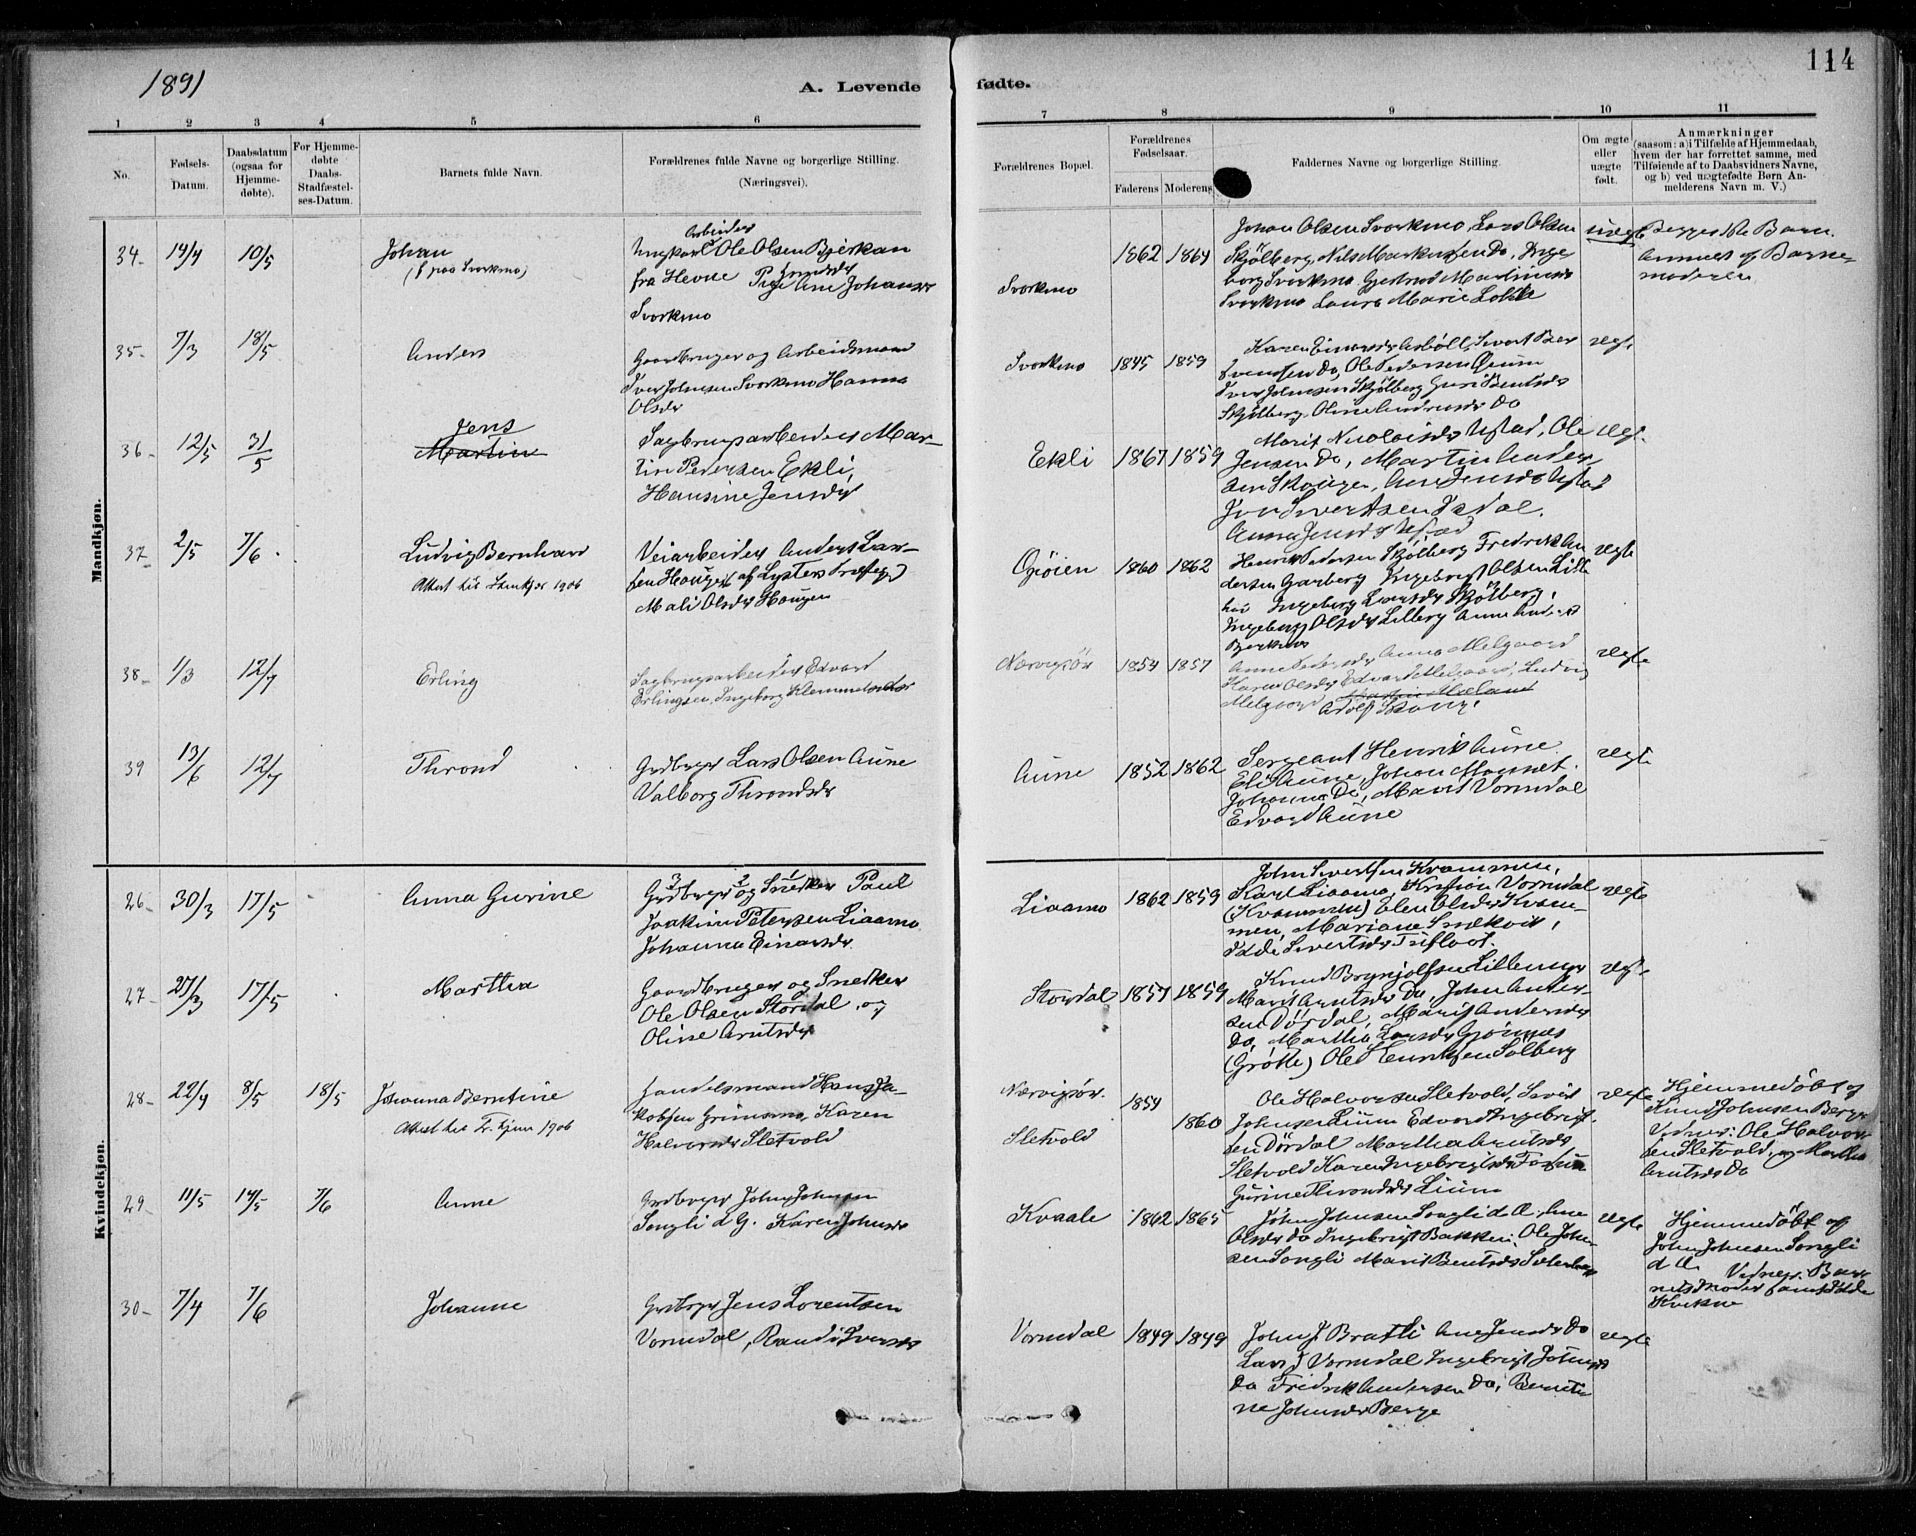 1891
A. Levende fødte.
114
1 2 3 4 5 6 7 8 9 10 11
No.
Fødsels-Datum.
Daabsdatum (ogsaa for Hjemmedøbte).
For Hjemmedøbte Daabs-Stadfæstelses-Datum.
Barnets fulde Navn.
Forældrenes fulde Navne og borgerlige Stilling.
(Næringsvei).
Forældrenes Bopæl.
Forældrenes Fødselsaar.
Faderens Moderens
Faddernes Navne og borgerlige Stilling.
Om ægte eller uægte født.
Anmærkninger
(saasom: a) i Tilfælde af Hjemmedaab,
hvem der har forrettet samme, med
Tilføiende af to Daabsvidners Navne,
og b) ved uægtefødte Børn Anmelderens Navn m. V.)
Mandkjøn.
34- 14/4 10/5 Johan
(f paa Svorkmo)
Arbeider
Ungkarl Ole Olsen Bjerkan
fra Hevne Pige Ane Johansdr
Svorkmo
Svorkmo 1862 1864
Johan Olsen Svorkmo, Lars Olsen
Skjölberg, Nils Markussen Do, Inge-
borg Svorkmo Gjertrud Martinusdr
Svorkmo Laura Marie Lokke
uægte
Begges 1ste Barn.
Anmeldt af Barne-
moderen
35- 7/3 18/5 Anders
Gaardbruger og Arbeidsmand
Iver Johnsen Svorkmo Hanna
Olsdr
Svorkmo 1845 1859
Karen Einarsdr Asböll, Sivert
Svendsen Do, Ole Pedersen Öium
Iver Johnsen Skjölberg Guri Bentsdr
Skjölberg, Oline Andersdr Do
ægt.
36- 12/5 31/5 Jens
Martin
Sagbrugsarbeider Mar-
tin Pedersen Ekli,
Hansine Jensdr
Ekli 1867 1859
Marit Nicolaisdr Ustad, Ole
Jensen Do, Martin Ander
sen Skauge, Ane Jensdr Ustad
Jon Sivertsen Isdal.
Anna Jensdr Ustad
ægt.
37- 2/5 7/6 Ludvig Bernhard
Attest til Stenkjær 1906
Veiarbeider Anders Lar-
sen Haugen (af Lysters Præstegj)
Mali Olsdr Haugen
Ogjöien 1860 1862
Henrik Pedersen Skjölberg Fredrik An
dersen Garberg Ingebrigt Olsen Lille
hov Ingeborg Larsdr Skjölberg,
Ingeborg Olsdr Lilberg Anne
Bjerkan
ægte
38- 1/3 12/7 Erling
Sagbrugsarbeider Edvard
Erlingsen, Ingeborg Klemmetsdtr
Nærvigsör 1854 1857
Anne Pedersdr Anna Melgaard
Karen Olsdr Edvard Melgaard, Ludvig
Melgaard
Adolf Skauge
ægte
39 13/6 12/7 Thrond
Grdbrger Lars Olsen Aune
Valborg Throndsdr
Aune 1852 1862
Sergeant Henrik Aune
Eli Aune, Johan Monset.
Johanna Do, Marit Vormdal
Edvard Aune
ægte
Kvindekjøn.
26- 30/3 17/5 Anna Gurine
3 2 1
Grdbrger og Snedker Paul
Joakim Petersen Liaamo
Johanna Einarsdr
Liaamo 1862 1859
John Sivertsen Krammen,
Karl Liaamo, Kristian Vormdal
(Krammen) Elen Olsdr Kram-
men, Mariane Smekvit,
Ildri Sivertsdr
ægte
27- 27/3 17/5 Martha
Gaardbruger og Snedker
Ole Olsen Stordal og
Oline Arntsdr
Stordal 1857 1859
Knud Brynjolfsen Lillemyr
Marit Arntsdr Do, John Ander-
sen Dördal, Marit Andersdr
Do, Martha Larsdr Grönnes
(Grötte) Ole Henriksen Solberg
ægt.
28- 22/4 8/5 18/5 Johanna Berntine
Attest til Tr.hjem 1906
Handelsmand Hans Ja-
kobsen Grimsmo, Karen
Halvorsdr Sletvold
Nærvigsör.
Sletvold
1854 1860
Ole Halvorsen Sletvold, Sivert
Johnsen Lium Edvard Ingebrigt-
sen Dördal Martha Arntsdr
Sletvold Karen Ingebrigtsdr
Gurine Throndsdr Lium
ægte
Hjemmedöbt af
Knud Johnsen Berge
Vidner: Ole Halvor
sen Sletvold, og Martha
Arntsdr Do
29- 11/5 14/5 7/6 Anne
Grdbrger John Johnsen
Songli d G. Karen Johnsdr
Kvaale 1862 1865
John Johnsen Songli d. Æ. Ane
Olsdr Do Ingebrigt Bakken. Ole John-
sen Songli Marit Bentsdr
ægte
Hjemmedöbt af
John Johnsen Songli
d Æ. Vidner: Bar-
nets Moder samt Ildri
Kvikne
30- 7/4 7/6 Johanne
Grdbrger Jens Lorentsen
Vormdal, Randi Iversdr
Vormdal 1849 1849
John J Bratli Ane Jensdr Do
Lars J Vormdal Ingebrigt Johnsdr
Do Fridrik Andersen Do, Bernti-
ne Johnsdr Berge
ægte